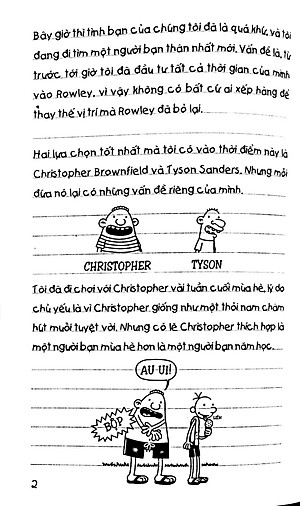 Bây giờ thì tình bạn của chúng tôi đã là quá khứ, và tôi
đang đi tìm một người bạn thân nhất mới. Vấn đề là, từ
trước tới giờ tôi đã đầu tư tất cả thời gian của mình
vào Rowley, vì vậy không có bất cứ ai xếp hàng để
thay thế vị trí mà Rowley đã bỏ lại.
Hai lựa chọn tốt nhất mà tôi có vào thời điểm này là
Christopher Brownfield và Tyson Sanders. Nhưng mỗi
đứa nó lại có những vấn đề riêng của mình.
CHRISTOPHER TYSON
Tôi đã đi chơi với Christopher vài tuần cuối mùa hè, lý do
chủ yếu là vì Christopher giống như một thỏi nam châm
hút muỗi tuyệt vời. Nhưng có lẽ Christopher thích hợp là
một người bạn mùa hè hơn là một người bạn năm học.
AU UI!
BỘP
2